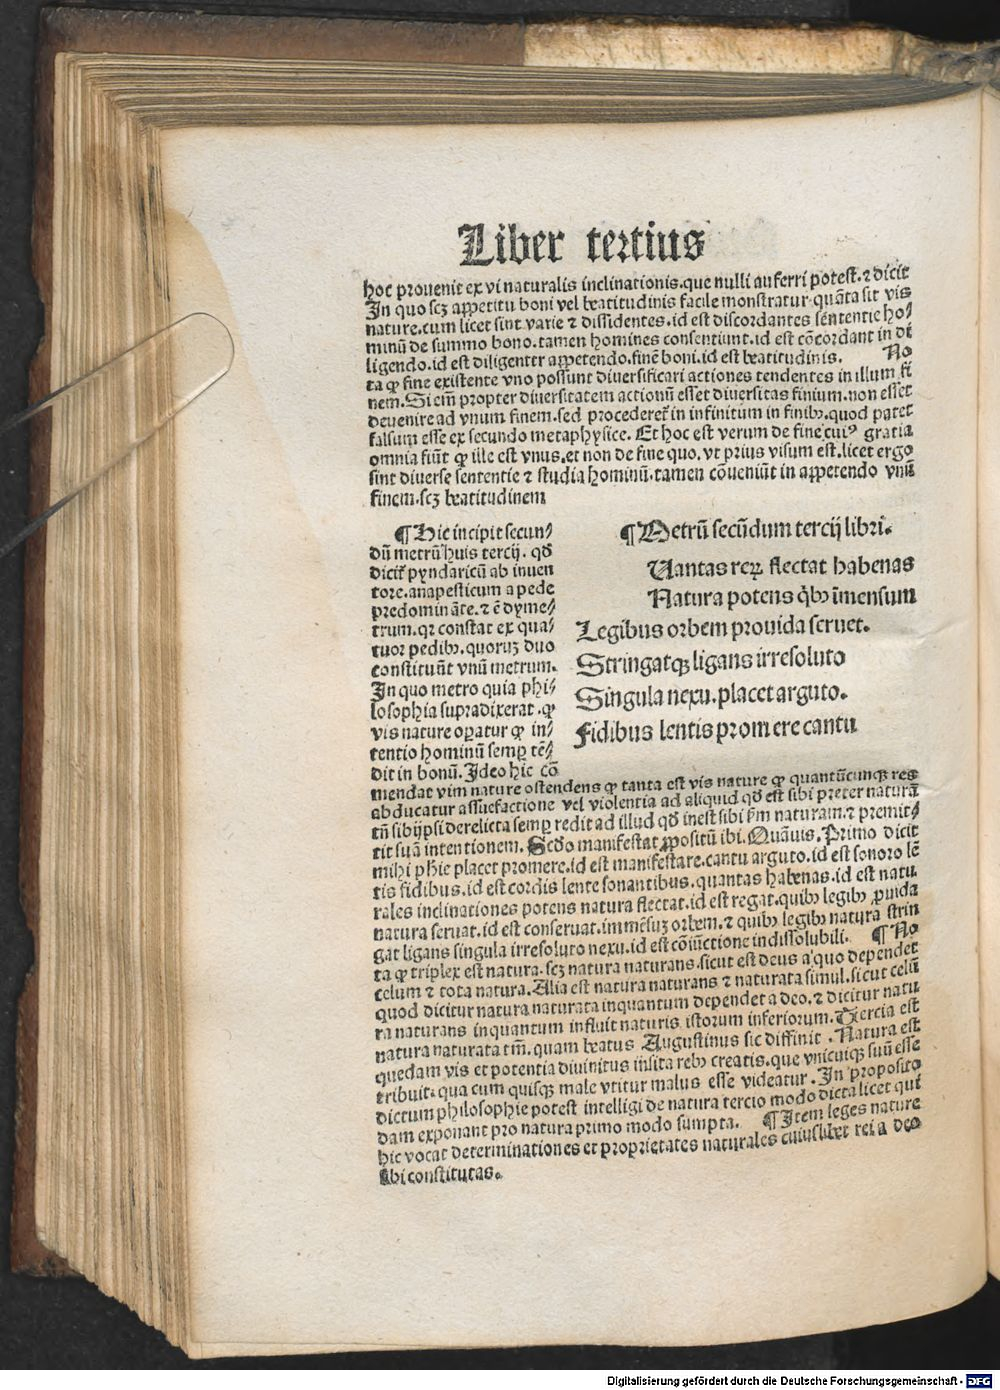 Liber tertius
hoc prouenit ex vi naturalis inclinationis.que nulli auferri potest.⁊ dicit
In quo scꝫ appetitu boni vel beatitudinis facile monstratur.quãta sit vis
nature.cum licet sint varie ⁊ dissidentes.id est discordantes sententie ho⸗
minũ de summo bono.tamen homines consentiunt.id est cõcordant in di
ligendo.id est diligenter appetendo.finẽ boni.id est beatitudinis. No
ta ꝙ fine existente vno possunt diuersificari actiones tendentes in illum fi
nem.Si em̃ propter diuersitatem actionũ esset diuersitas finium.non esset
deuenire ad vnum finem.sed procederet᷑ in infinitum in finibꝫ.quod patet
falsum esse ex secundo metaphysice. Et hoc est verum de fine cuiꝰ gratia
omnia fiũt ꝙ ille est vnus.et non de fine quo.vt prius visum est.licet ergo
sint diuerse sententie ⁊ studia hominũ.tamen cõueniũt in appetendo vnũ
finem.scꝫ beatitudinem
¶Hic incipit secun⸗
dũ metrũ huis tercij. qđ
dicit᷑ pyndaricũ ab inuen
tore.anapesticum a pede
predominãte.⁊ ẽ dyme⸗
trum.qꝛ constat ex qua⸗
tuor pedibꝫ.quoruꝫ duo
constituũt vnũ metrum.
In quo metro quia phi⸗
losophia supradixerat.ꝙ
vis nature oꝑatur ꝙ in⸗
tentio hominũ semꝑ tẽ⸗
dit in bonũ. Ideo hic cõ
¶Metrũ secũdum tercij libri.
Uantas reꝝ flectat habenas
Natura potens q̃bꝫ ĩmensum
Legibus orbem prouida seruet.
Stringatqꝫ ligans irresoluto
Singula nexu.placet arguto.
Fidibus lentis promere cantu
mendat vim nature ostendens ꝙ tanta est vis nature ꝙ quantũcunqꝫ res
abducatur assuefactione vel violentia ad aliquid qđ est sibi preter naturã
tñ sibijpsi derelicta semꝑ redit ad illud qđ inest sibi ẜm naturam.⁊ premit⸗
tit suã intentionem. Scđo manifestat ꝓpositũ ibi. Quãuis. Primo dicit
mihi phie placet promere.id est manifestare.cantu arguto.id est sonoro lẽ
tis fidibus.id est cordis lente sonantibus.quantas habenas.id est natu
rales inclinationes potens natura flectat.id est regat.quibꝫ legibꝫ ꝓuida
natura seruat.id est conseruat.immẽsuꝫ orbem.⁊ quibꝫ legibꝫ natura strin
gat ligans singula irresoluto nexu.id est cõiũctione indissolubili. ¶No
ta ꝙ triplex est natura.scꝫ natura naturans.sicut est deus a quo dependet
celum ⁊ tota natura.Alia est natura naturans ⁊ naturata simul.sicut celũ
quod dicitur natura naturata inquantum dependet a deo.⁊ dicitur natu
ra naturans inquantum influit naturis istorum inferiorum.Tercia est
natura naturata tm̃.quam beatus Augustinus sic diffinit .Natura est
quedam vis et potentia diuinitus insita rebꝫ creatis.que vnicuiqꝫ suũ esse
tribuit.qua cum quisqꝫ male vtitur malus esse videatur. In proposito
dictum philosophie potest intelligi de natura tercio modo dicta licet qui
dam exponant pro natura primo modo sumpta. ¶Item leges nature
hic vocat determinationes et proprietates naturales cuiuslibet rei a deo
sibi constitutas.
Digitalisierung gefördert durch die Deutsche Forschungsgemeinschaft - DFG